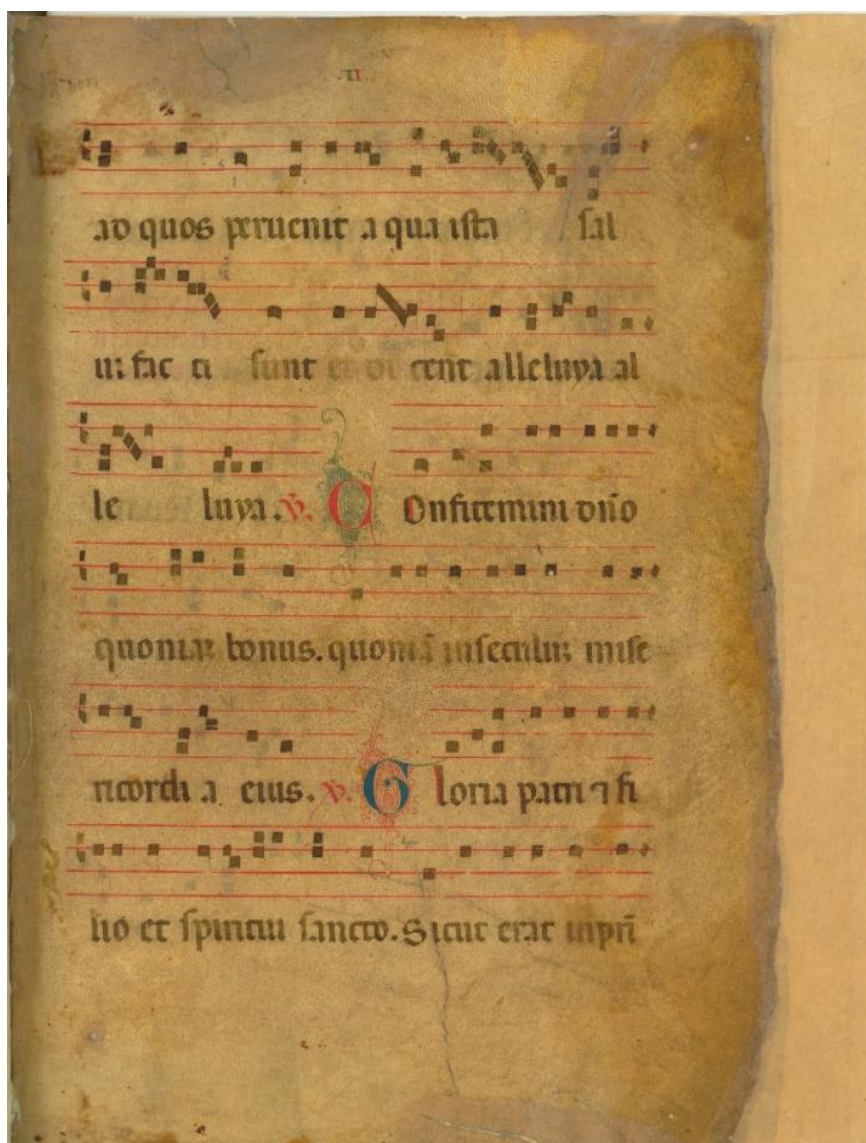 II
ad quos peruenit a qua ista sal
ui fac ti sunt et di cent alleluya al
le luya. V. C Onfitemini dño
quoniaz bonus. quoniã inseculuz mise
ricordi a eius. V. G loria patri ⁊ fi
lio et spiritui sancto. Sicut erat inpri